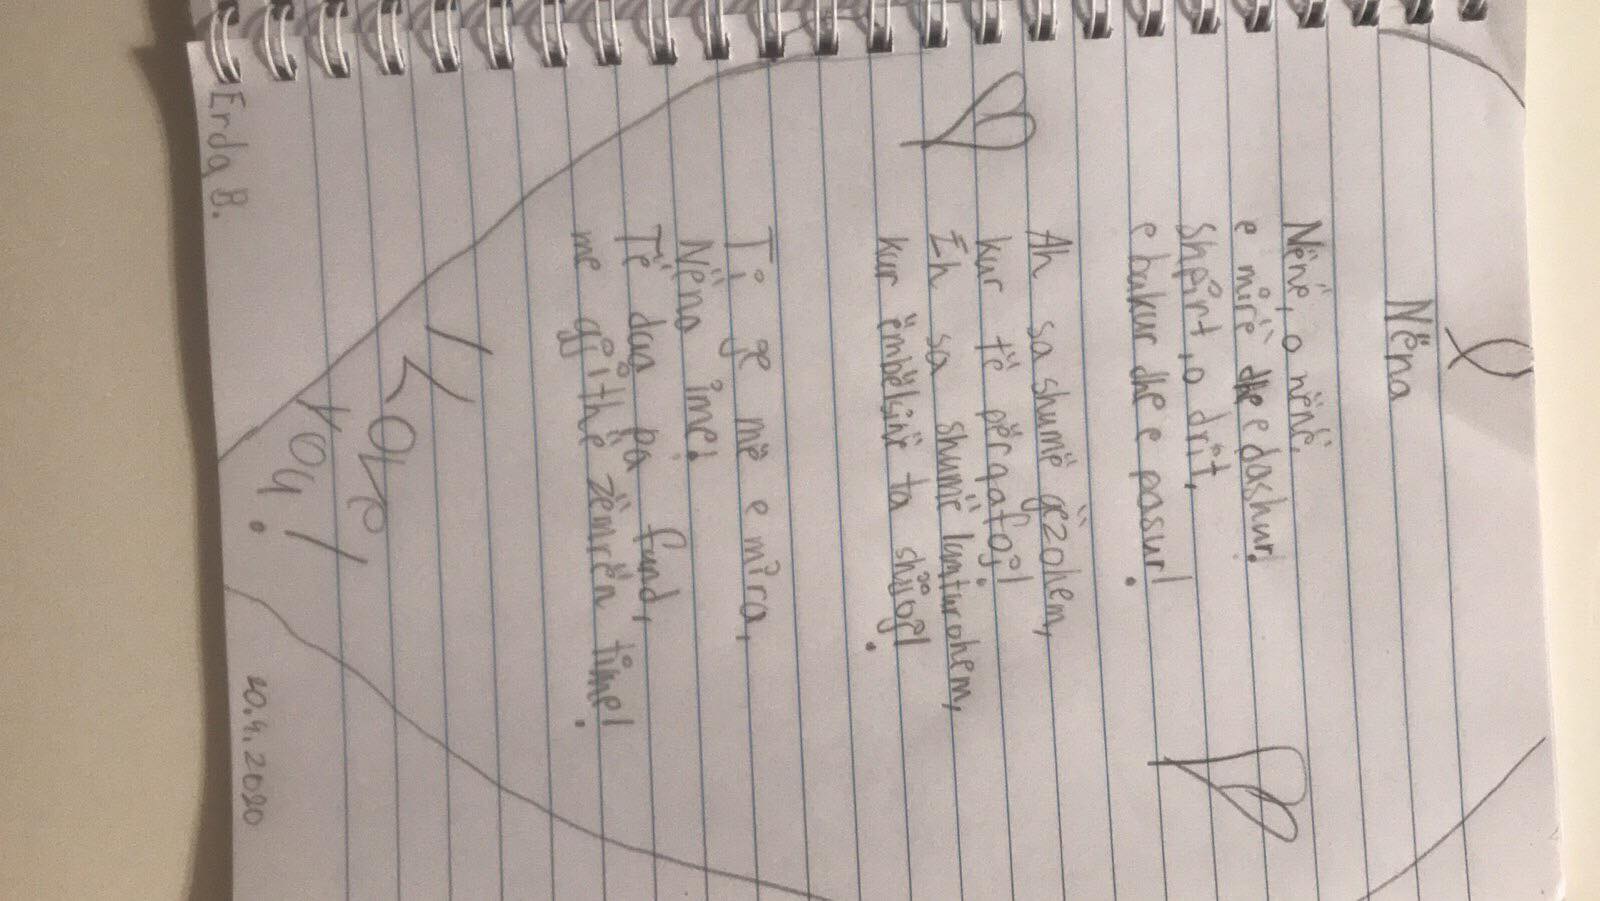 Nëna
Nënë, o nënë,
e mirë dhe e dashur!
Shpirt, o drit,
e bukur dhe e pasur!
Ah sa shumë gëzohem,
kur të përqafoj!
Eh sa shumë lumturohem,
kur ëmbëlsinë ta shijoj!
Ti je më e mira,
Nëna ime!
Të dua pa fund,
me gjithë zëmrën time!
I Love
You!
Erda B.
20.4.2020